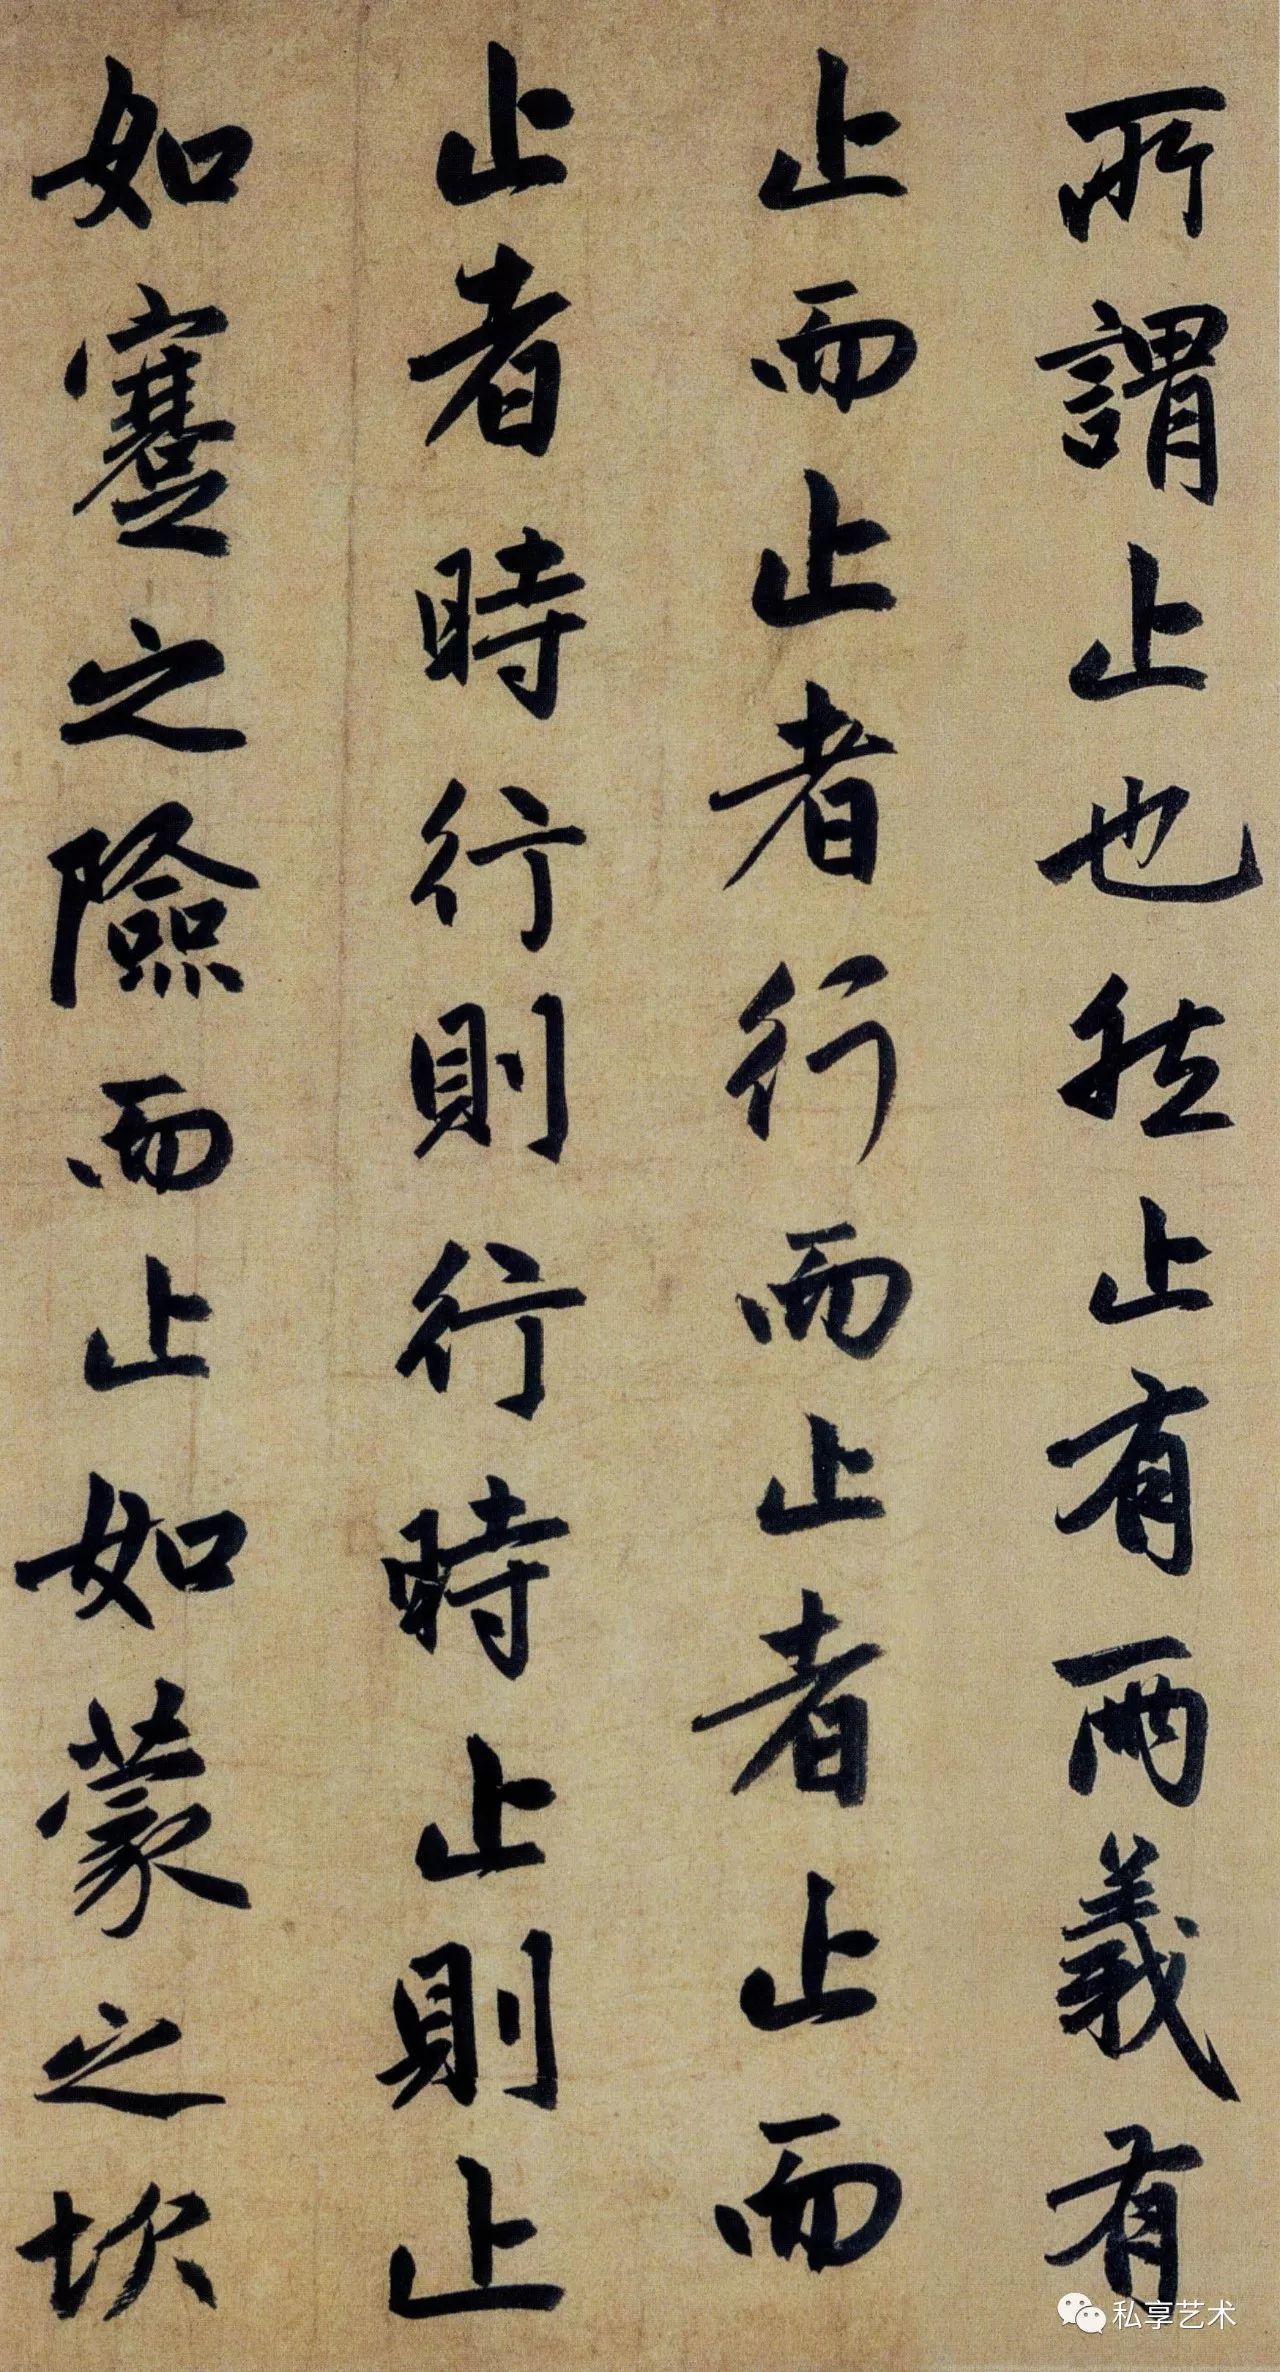 所謂止也然止有兩義有
止而止者行而止者止而
止者時行則行時止則止
如蹇之險而止如蒙之坎
私享艺术